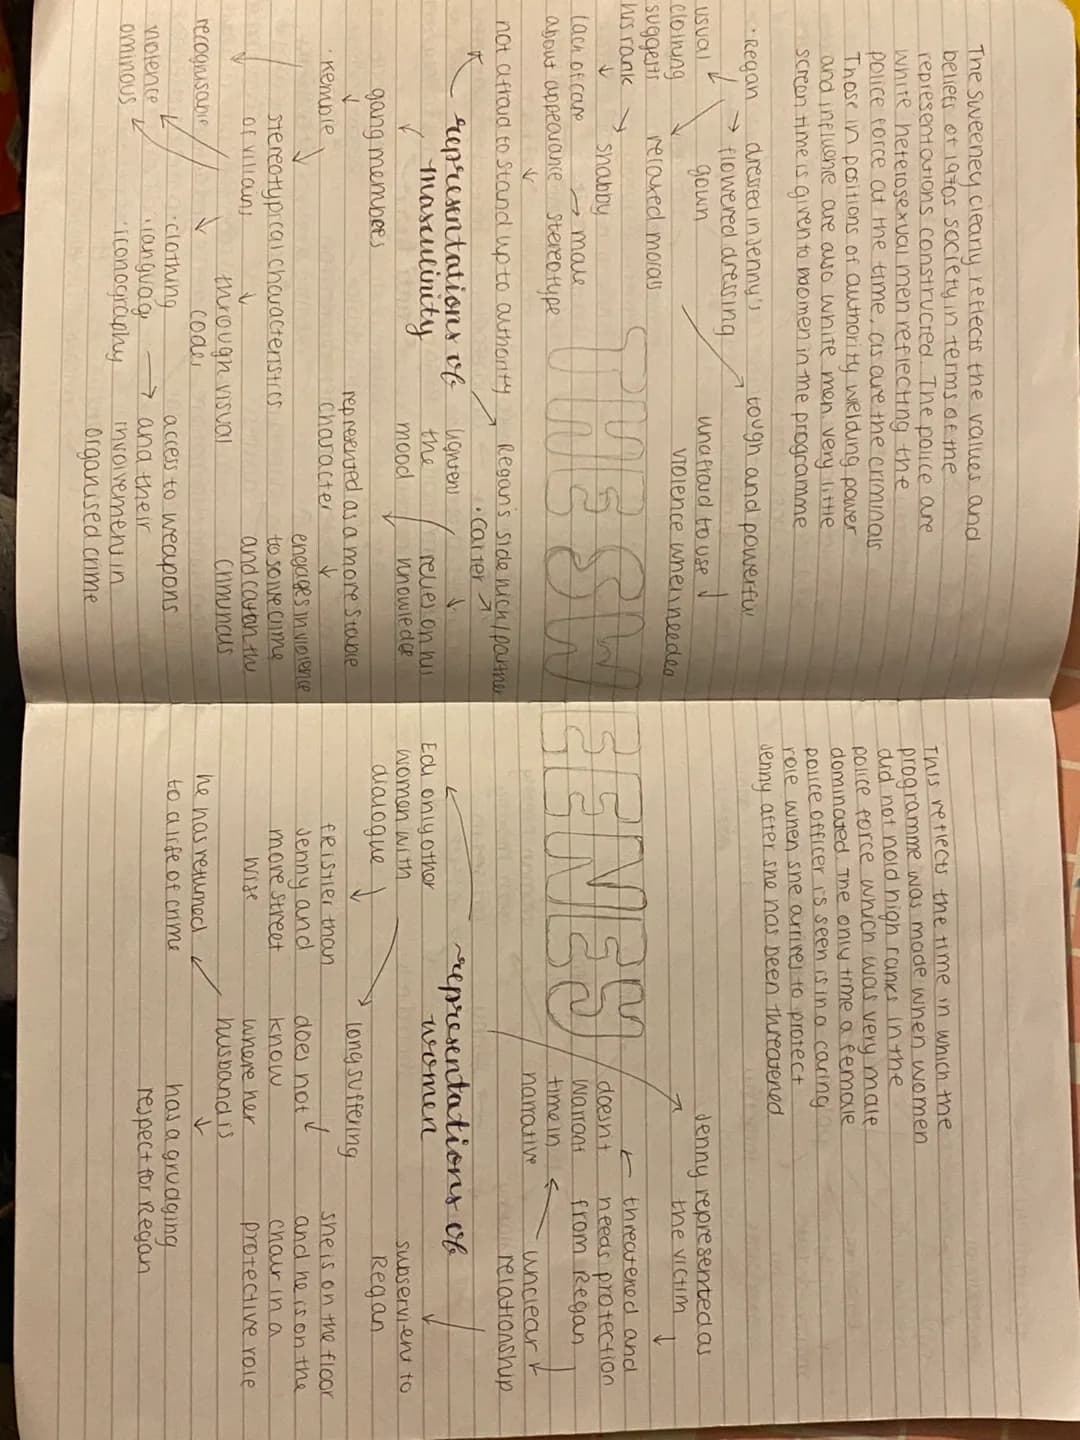 The Sweeney clearly reflects the values and
beliefs of 1970s society in terms of the
representations constructed. The police are
white heterosexual men reflecting the
police force at the time, as are the criminals
Those in positions of authority welding power
and influence are also white men very little
screen time is given to women in the programme
• Regan → dressed in Jenny's
flowered dressing
gown
usual
clothing
suggests
his rank → shabby
relaxed morals
tough and powerful
unafraid to use
violence when needed
lack of care → male
about appearance stereotype
not afraid to stand up to authority
THE SWEENEY
Regan's side kick/partner
• Carter
~representations of
masculinity
lighten
the
mood
relies on his
knowledge
gang members
• Kemble
represented as a more stable
character
engages in violence
to solve crime
and catch the
criminals
stereotypical characteristics
of villains
through visual
codes
recognisable
violence
ominous
• clothing
• language
• iconography
access to weapons
→ and their
involvement in
organised crime
This reflects the time in which the
programme was made when women
did not hold high ranks in the
police force which was very male
dominated. The only time a female
police officer is seen is in a caring
role when she arrives to protect
Jenny after she has been threatened
Jenny represented as
the victim
threatened and
needs protection
from Regan
doesnt
warrant
time in
narrative
unclear
relationship
~representations of
women
Edi only other
women with
dialogue
subservient to
Regan
feistier than
Jenny and
more street
wise
long suffering
does not
know
where her
husband is
she is on the floor
and he is on the
chair in a
protective role
he has returned
to a life of crime
has a grudging
respect for Regan